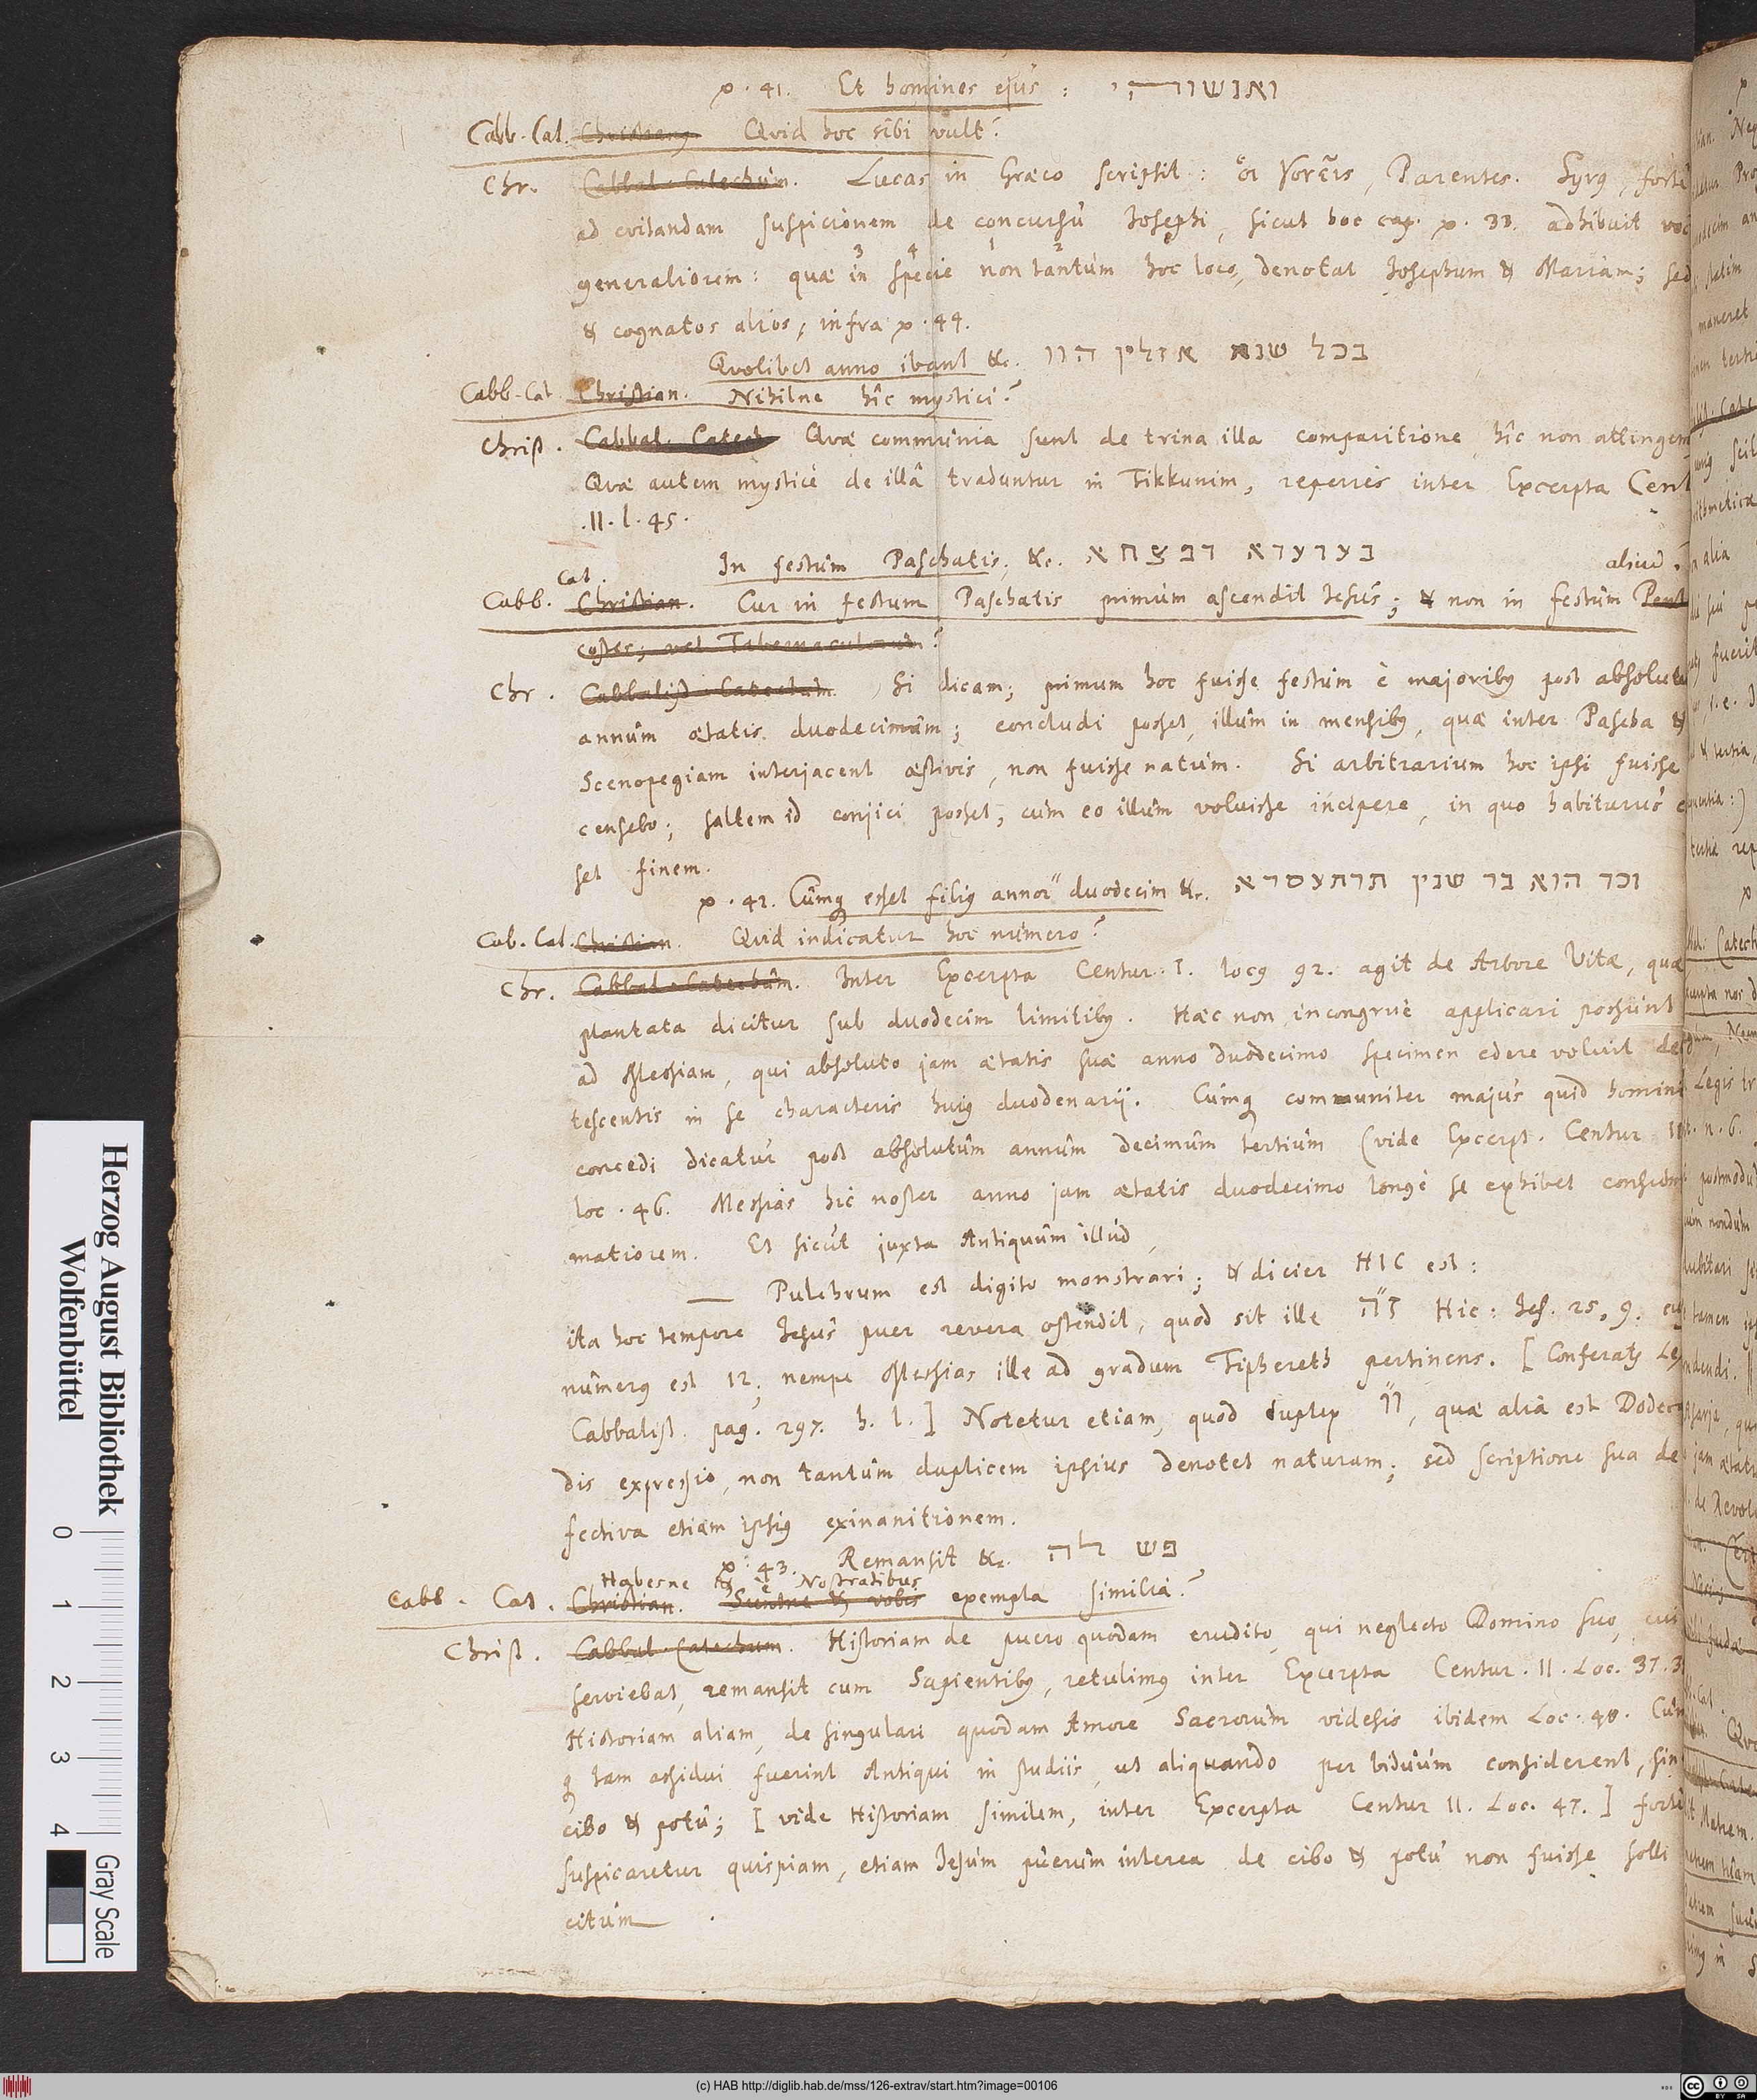 ℣. 41. Et homines ejus: ואנשוהי
Cabb. Cat. Christianus Quid hoc sibi vult?
Chr. Cabbal. Catechum. Lucas in Graeco scripsit: οἱ γονεῖς, Parentes. Syrus, forte
ad evitandam suspicionem de concursu Josephi, sicut hoc cap. ℣. 33. adhibuit voc
generaliorem: quae in specie non tantum hoc loco, denotat Josephum & Mariam; sed
3 4 1 2
& cognatos alios, infra ℣. 44.
Quolibet anno ibant &c. בכל שנא אזלין הוו
Cabb. Cat. Christian. Nihilne hîc mystici?
Christ. Cabbal. Catech. Quae communia sunt de trina illa comparitione hîc non attingem
Quae autem mysticè de illâ traduntur in Tikkunim, reperies inter Excerpta Cent
.II. l. 45.
In festum Paschatis, &c. בעדעדא דפצחא
aliud?
Cabb. Cat. Christian. Cur in festum Paschatis primum ascendit Jesus; & non in festum Pent
costes, vel Tabernaculorum?
Chr. Cabbalist. Catechum. Si dicam; primum hoc fuisse festum è majoribus post absolutu
annum aetatis duodecimum; concludi posset, illum in mensibus, quae inter Pascha &
Scenopegiam interjacent aestivis, non fuisse natum. Si arbitrarium hoc ipsi fuisse
censebo; saltem id conjici posset, cum eo illum voluisse incipere, in quo habiturus e
set finem.
℣. 42. Cumq esset filius annor duodecim &c. וכד הוא בר שנין תרתעסרא
Cab. Cat. Christian. Quid indicatur hoc numero?
Chr. Cabbal. Catechum. Inter Excerpta Centur. I. locus 92. agit de Arbore Vitae, quae
plantata dicitur sub duodecim limitibus. Haec non incongruè applicari possunt
ad Messiam, qui absoluto jam aetatis suae anno duodecimo specimen edere voluit de
tescentis in se characteris hujus duodenarij. Cumq communiter majus quid homini
concedi dicatur post absolutum annum decimum tertium (vide Excerpt. Centur II
loc. 46. Messias hic noster anno jam aetatis duodecimo longè se exhibet consum
matiorem. Et sicut juxta Antiquum illud,
— Pulchrum est digito monstrari; & dicier HIC est:
ita hoc tempore Jesus puer revera ostendit, quod sit ille ז״ה Hic: Jes. 25, 9. cuj
numerus est 12; nempe Messias ille ad gradum Tiphereth pertinens. [Conferatur Lex
Cabbalist. pag. 297. h. l.] Notetur etiam, quod duplex ו״ו, quae alia est Dodeca
dis expressio, non tantum duplicem ipsius denotet naturam; sed scriptione sua de
fectiva etiam ipsius exinanitionem.
℣. 43. Remansit &c. פש לה
Cabb. Cat. Christian. Habesne & è Nostratibus Suntne & vobis exempla similia?
Christ. Cabbal. Catechum. Historiam de puero quodam erudito, qui neglecto Domino suo, cui
serviebat, remansit cum Sapientibus, retulimus inter Excerpta Centur. II. Loc. 37. 3
Historiam aliam, de singulari quodam Amore Sacrorum videsis ibidem Loc. 40. Cum
q tam assidui fuerint Antiqui in studiis, ut aliquando per biduum considerent, sin
cibo & potu; [vide Historiam similem, inter Excerpta Centur II. Loc. 47.] forte
suspicaretur quispiam, etiam Jesum puerum interea de cibo & potu non fuisse solli
citum.
Herzog August Bibliothek
Wolfenbüttel
0 1 2 3 4
Gray Scale
(c) HAB http://diglib.hab.de/mss/126-extrav/start.htm?image=00106
cc BY SA